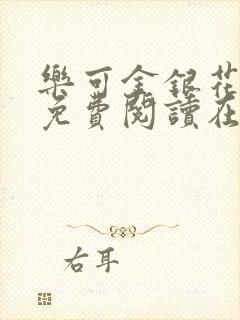 樂可金銀花
免費閱讀在
右耳